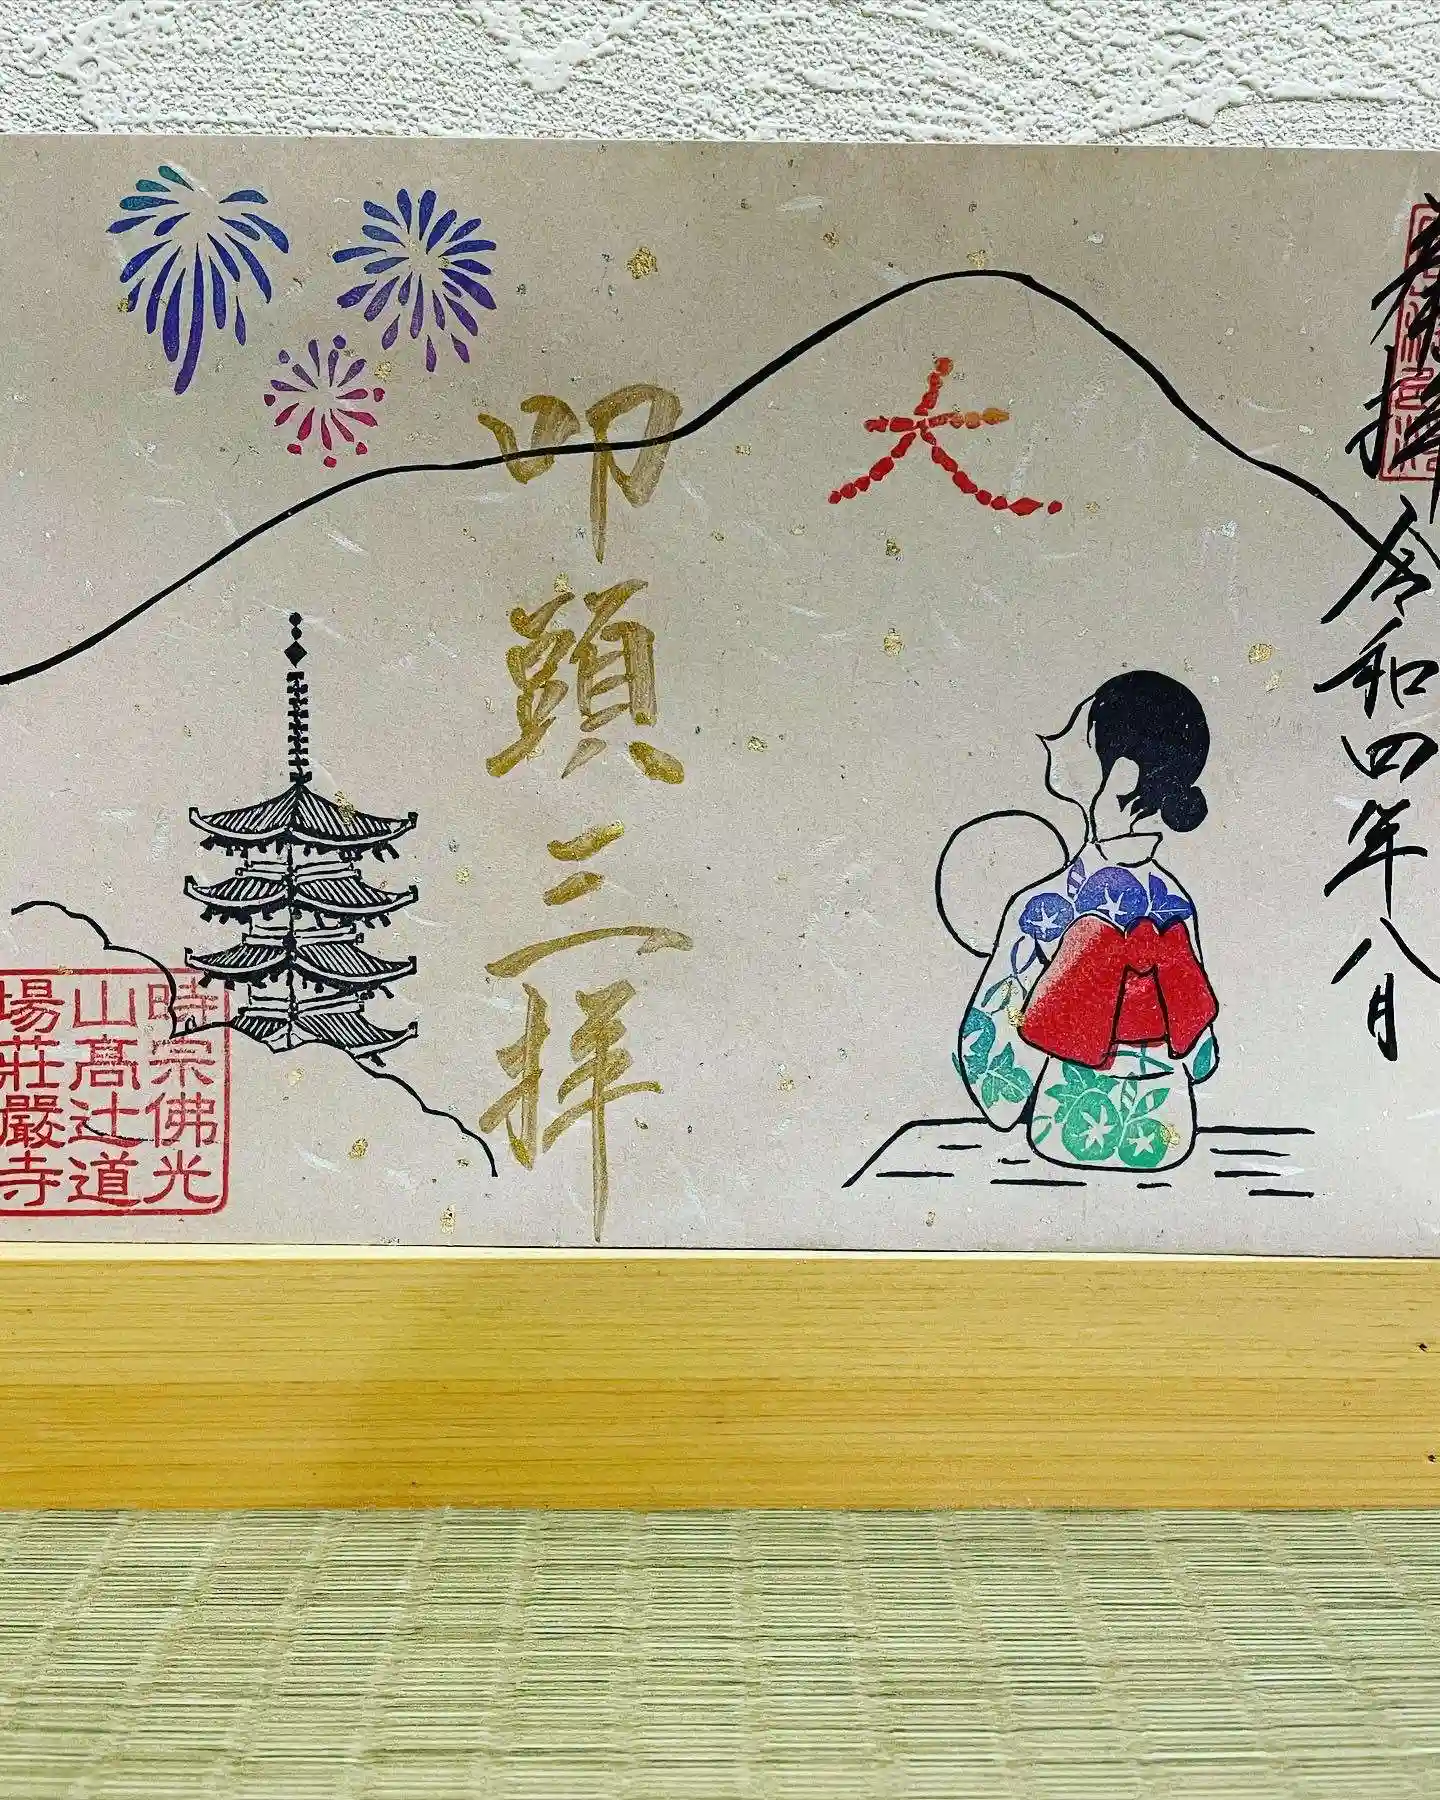 奉拝
令和四年八月
大
叩頭三拝
時宗佛光
山髙辻道
場莊嚴寺